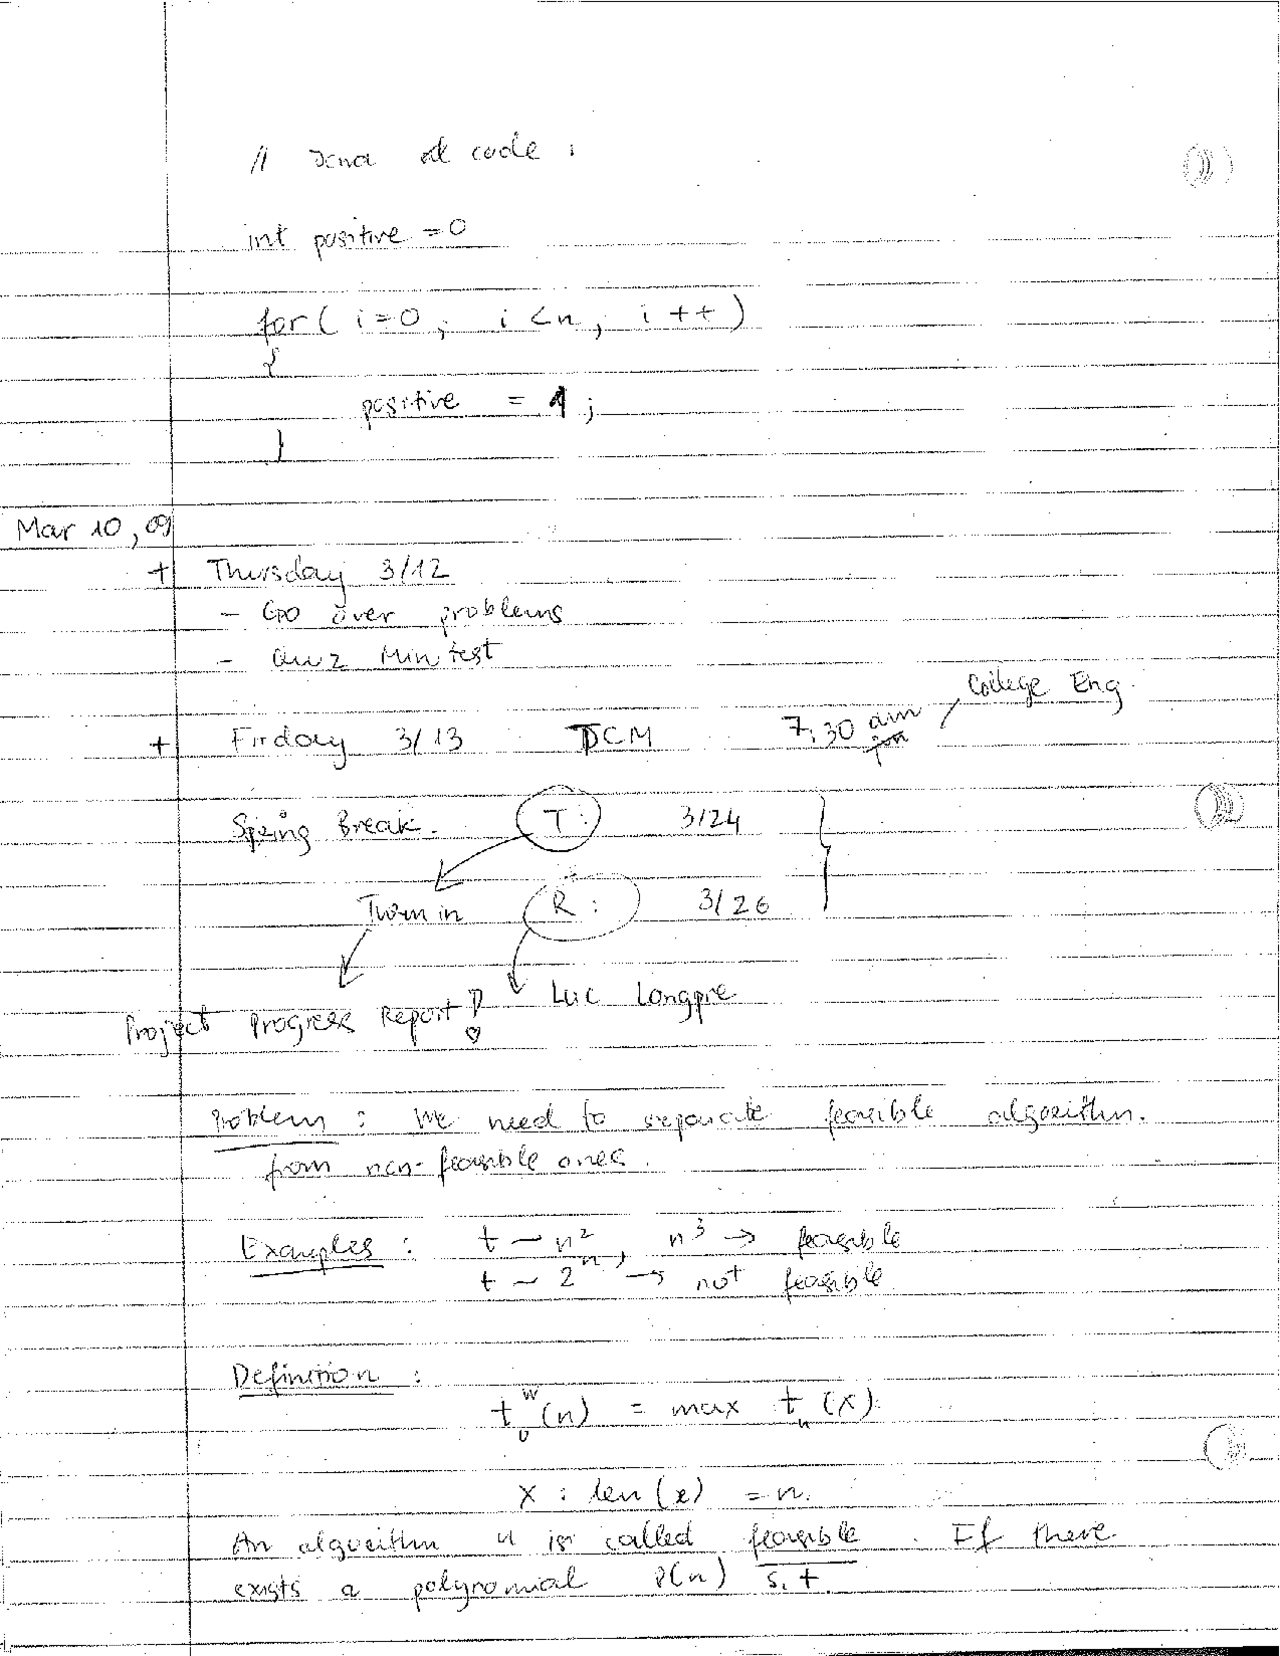 // Java code :
int positive = 0
for ( i = 0 ; i < n ; i ++ )
{
positive = 1 ;
}
Mar 10, 09
+ Thursday 3/12
- Go over problems
- Quiz Min test
College Eng.
+ Firday 3/13 TCM 7:30 am
Spring Break. T : 3/24
Turn in R : 3/26
Luc Longpre
Project Progress Report !
Problem : We need to separate feasible algorithm.
from non-feasible ones.
Examples : t ~ n², n³ → feasible
t ~ 2ⁿ → not feasible
Definition :
t_U^W (n) = max t_U (x)
x : len (x) = n.
An algorithm U is called feasible. If there
exists a polynomial P(n) s.t.